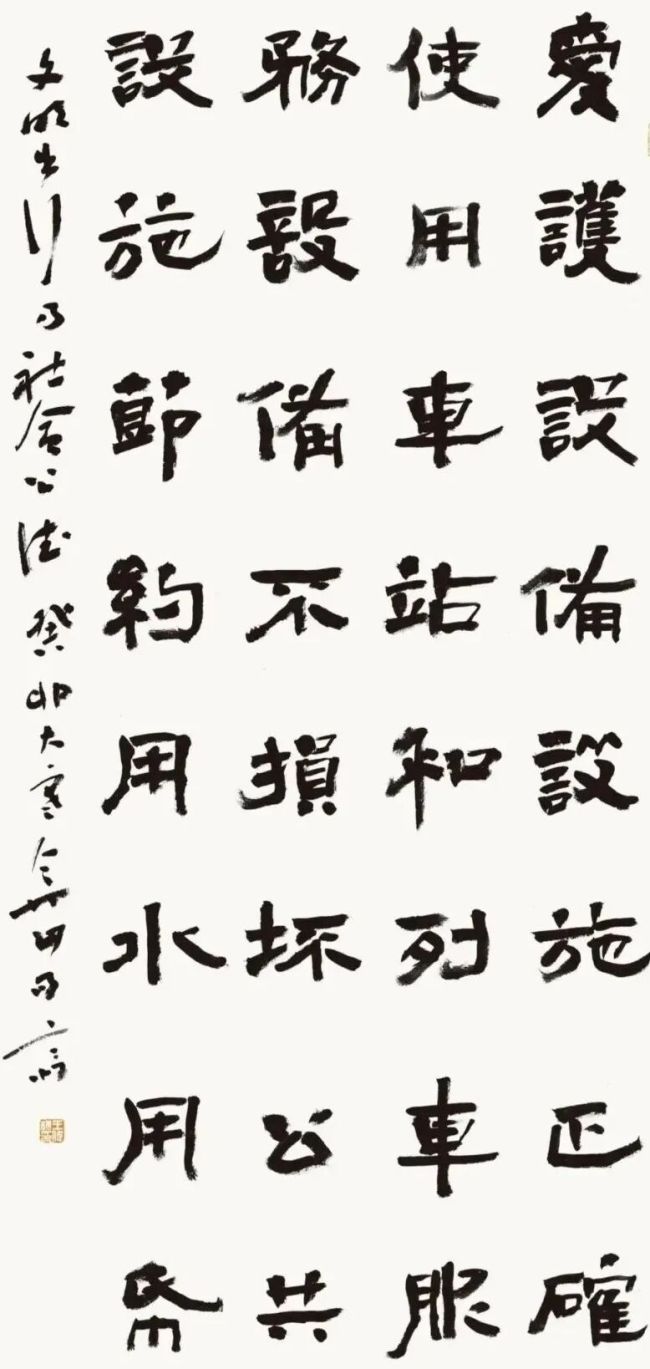 愛護設備設施正確
使用車站和列車服
務設備不損坏公共
設施節約用水用帋
文明出行乃社会公德 癸卯大寒